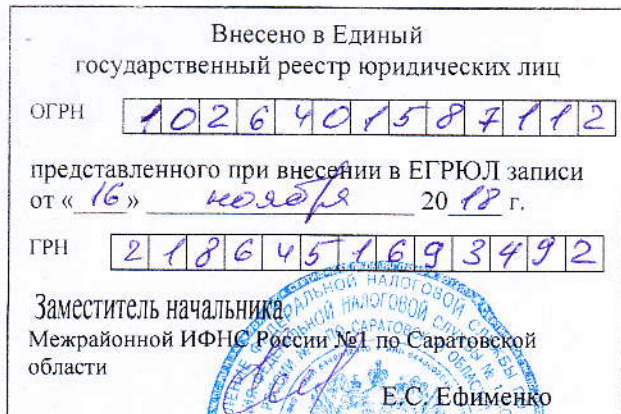 Внесено в Единый
государственный реестр юридических лиц
ОГРН 1026401587112
представленного при внесении в ЕГРЮЛ записи
от «16» ноября 2018 г.
ГРН 2186451693492
Заместитель начальника
Межрайонной ИФНС России №1 по Саратовской
области
Е.С. Ефименко